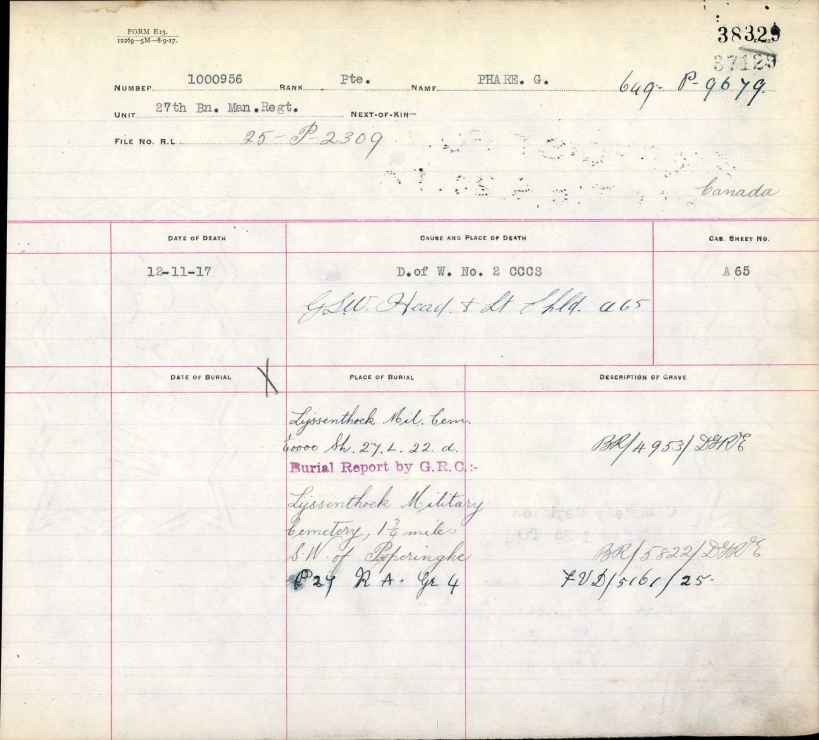 FORM E13.
12269—5M—8-9-17.
38329
37129
NUMBER 1000956 RANK Pte. NAME PHARE. G. 649- P-9679
UNIT 27th Bn. Man.Regt. NEXT-OF-KIN—
FILE NO. R.L. 25-P-2309
Canada
DATE OF DEATH CAUSE AND PLACE OF DEATH CAS. SHEET NO.
12-11-17 D.of W. No. 2 CCCS A 65
G.S.W. Head. & Lt Shld. a65
DATE OF BURIAL X PLACE OF BURIAL DESCRIPTION OF GRAVE
Lijssenthock Mil. Cem.
Sh. 27. L. 22. d. BR/4953/DGR&E
Burial Report by G.R.C.:-
Lijssenthock Military
Cemetery, 1 3/4 miles
S.W. of Poperinghe BR/5822/DGR&E
P27 R A. Gr 4 FVD/5161/25.